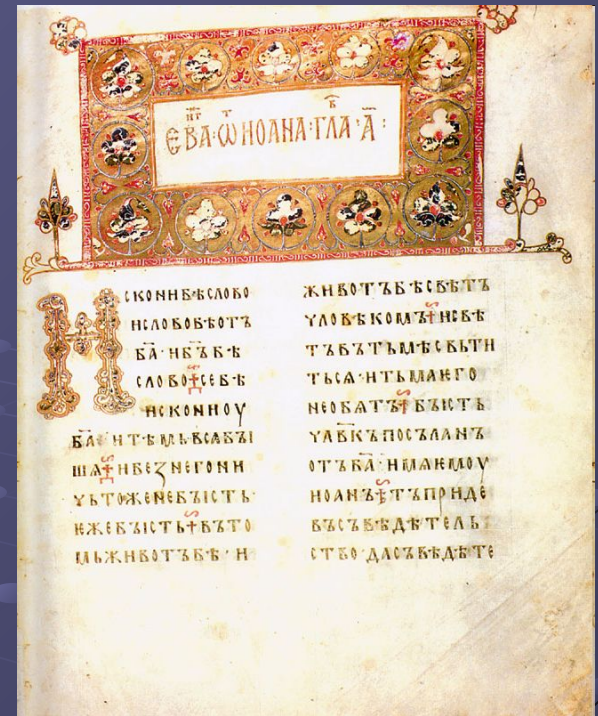 ЕВА҃·Ѿ ИОАНА·ГЛА·А҃:
ИСКОНИБѢСЛОВО
ИСЛОВОБѢОТЪ
БА҃·ИБ҃ЪБѢ
СЛОВО✝СЕБѢ
ИСКОНИОУ
БА҃·ИТѢМЬВСѦБЪІ
ШѦ✝ИБЕЗНЕГОНИ
ЧЬТОЖЕНЕБЪІСТЬ·
ЕЖЕБЪІСТЬ✝ВЪТО
МЬЖИВОТЪБѢ·И
ЖИВОТЪБѢСВѢТЪ
ЧЛОВѢКОМЪ✝ИСВѢ
ТЪВЪТЬМѢСВЬТИ
ТЬСѦ·ИТЬМАѤГО
НЕОБѦТЪ✝БЪІСТЬ
ЧЛ҃ВКЪПОСЪЛАНЪ
ОТЪБА҃·ИМѦѤМОУ
ИОАНЪ✝ТЪПРИДЕ
ВЪСЪВѢДѢТЕЛЬ
СТВО·ДАСЪВѢДѢТЕ